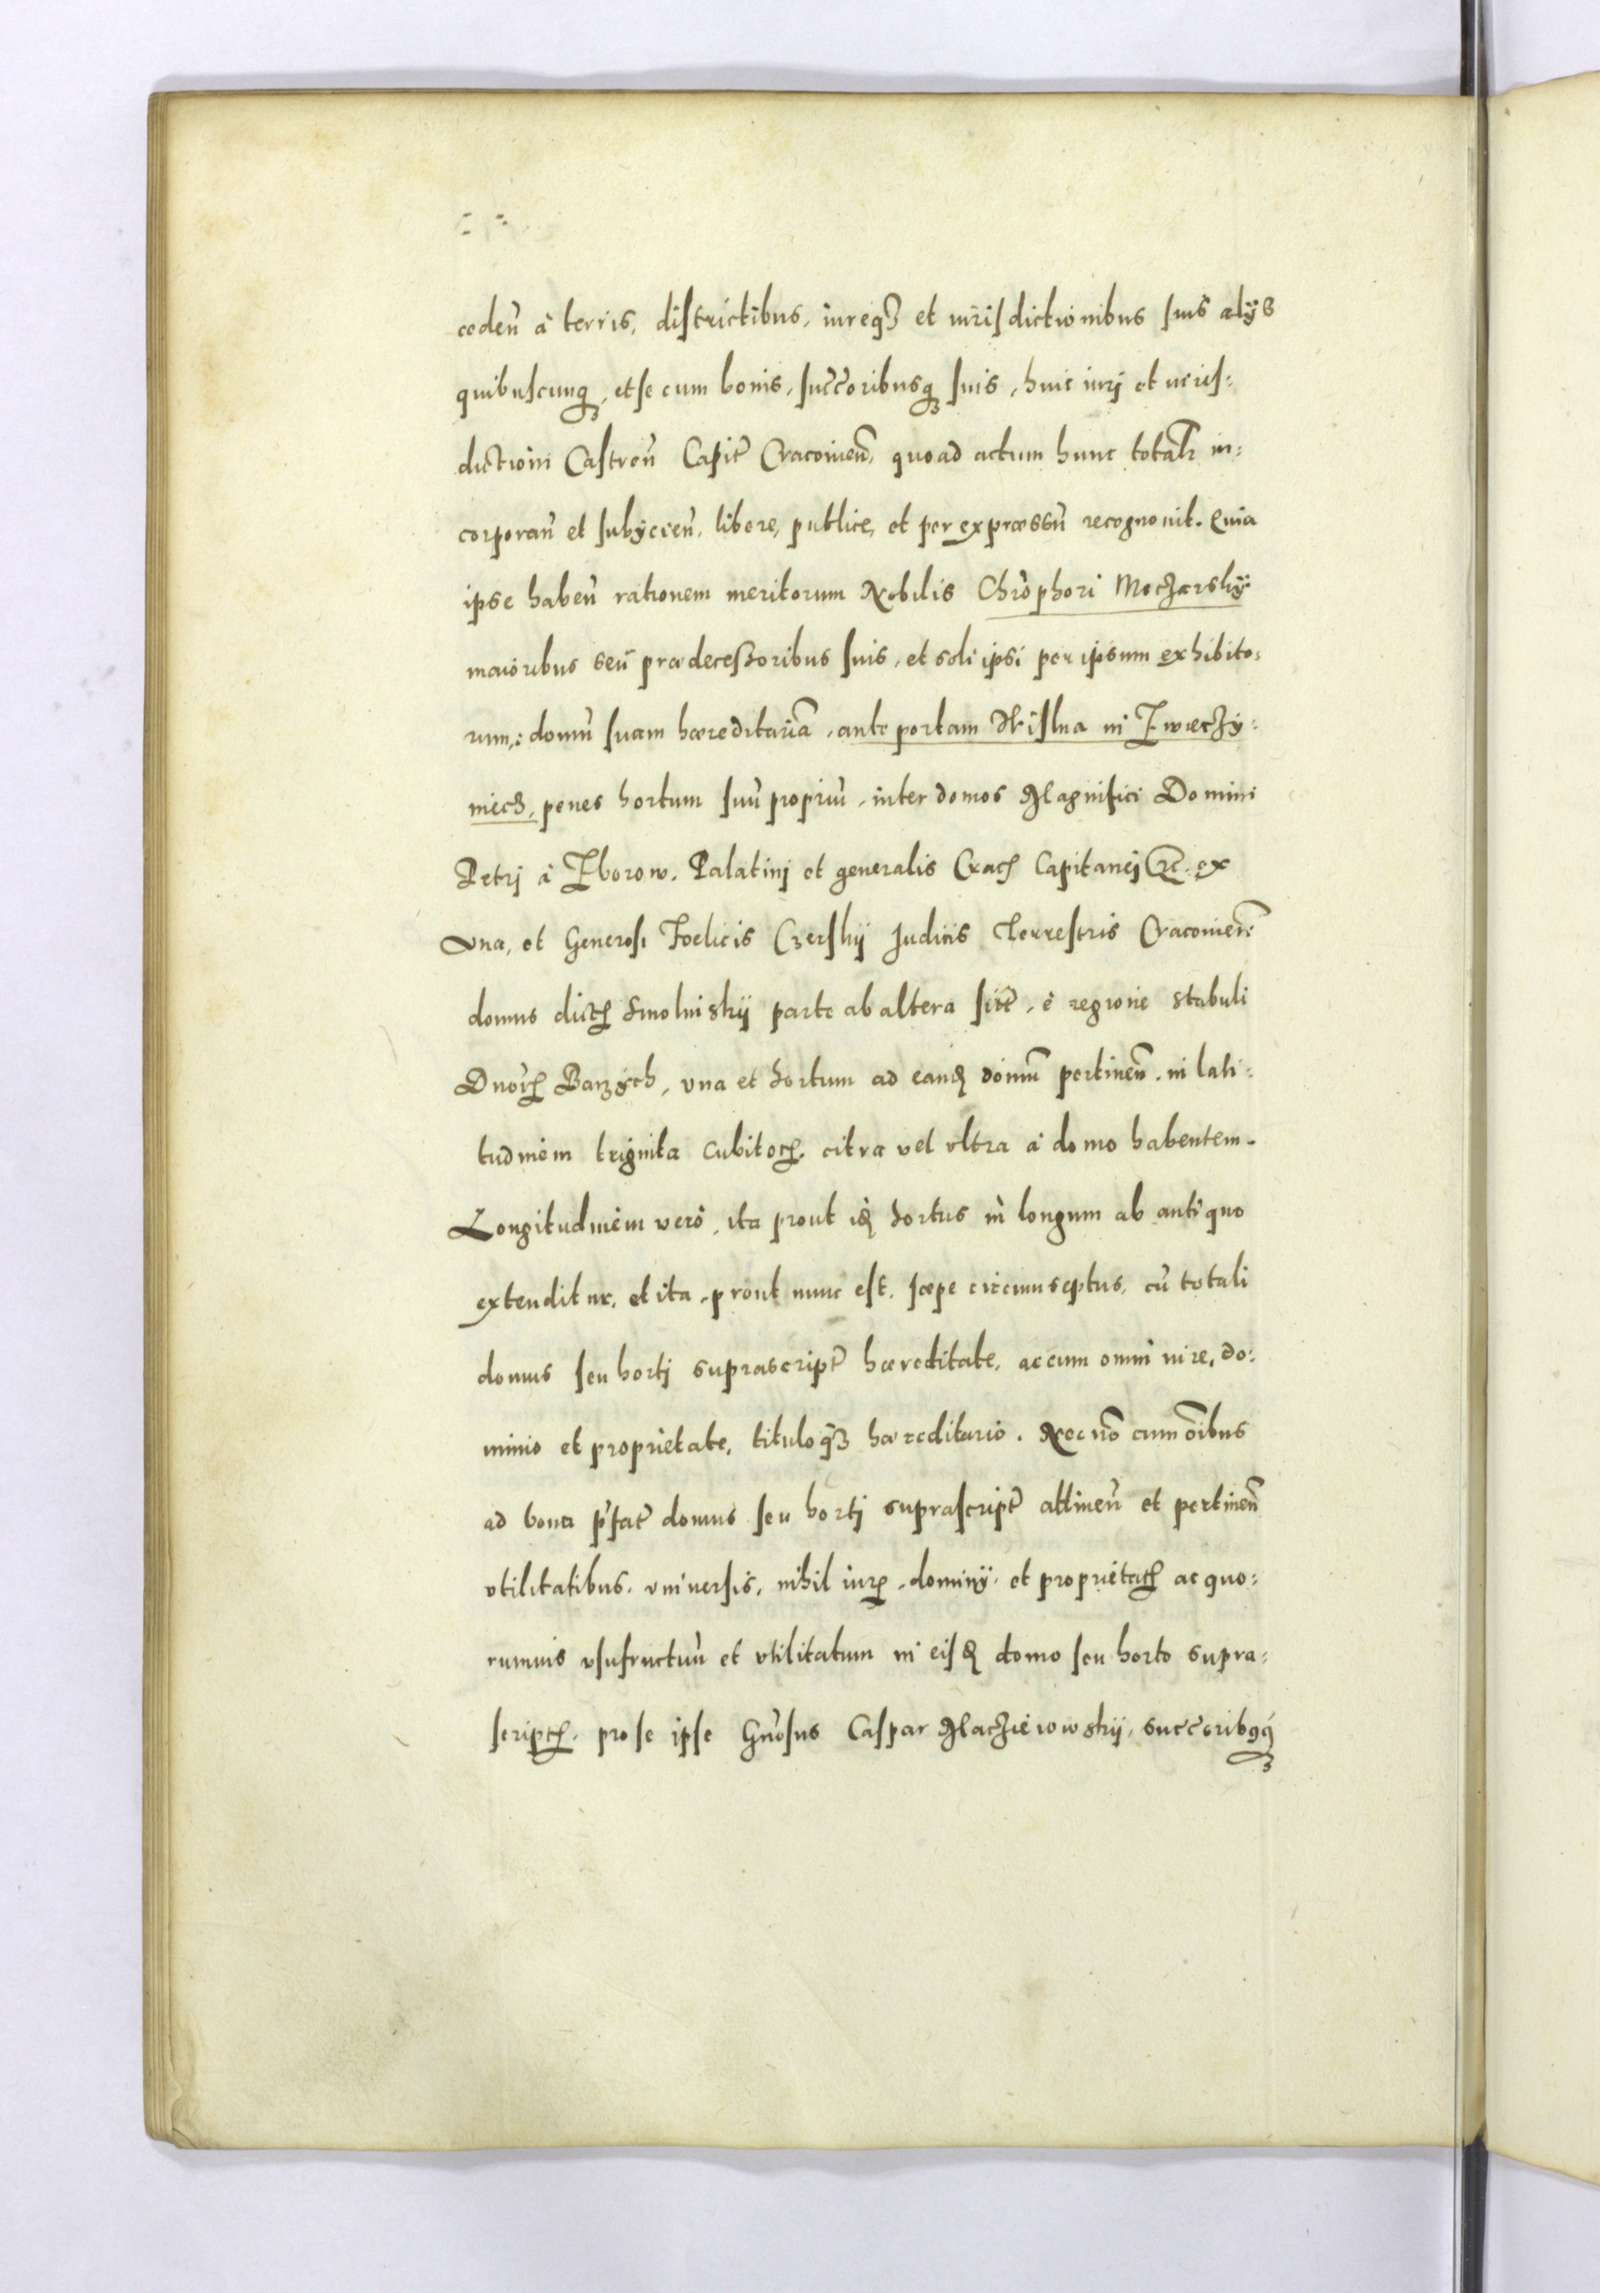 ceden̄ à terris, districtibus, iureqȝ et iurisdictionibus suis alijs
quibuscunqȝ, et se cum bonis, succ̄oribusqȝ suis, huic iurj et iuris:
dictioni Castren̄ Capit̄ Cracouien̄, quo ad actum hunc total̄r in:
corporan̄ et subijcien̄, libere, publice, et per expraessū recognouit. Quia
ipse haben̄ rationem meritorum Nobilis Chrōphori Moczarskÿ
maioribus seū praedecessoribus suis, et soli ipsi per ipsum exhibito:
rum: domū suam haereditariā, ante portam Wislna in Zwierzÿ:
niecz, penes hortum suū propriū, inter domos Magnifici Domini
Petrj à Zborow, Palatinj et generalis Cracꝭ Capitanej &c. ex
vna, et Generosi Foelicis Czerskÿ Judicis Terrestris Cracouien̄
domus dictꝭ Smolniskÿ parte ab altera sit̄, è regione stabuli
Dnorꝭ Banzÿch, vna et hortum ad eandꝭ domū pertinen̄, in lati:
tudinem triginta cubitorꝭ, citra vel vltra à domo habentem.
Longitudinem verò, ita prout idꝭ hortus in longum ab antiquo
extenditur, et ita, prout nunc est, saepe circumseptus, cū totali
domus seu hortj suprascript̄ haereditate, ac cum omni iure, do:
minio et proprietate, tituloqȝ haereditario. Nec nō cum oībus
ad bona p̄fat̄ domus seu hortj suprascript̄ attinen̄ et pertinen̄
vtilitatibus, vniuersis, nihil iurꝭ, dominÿ, et proprietatꝭ ac quo:
rumuis vsufructuū et vtilitatum in eisdꝭ domo seu horto supra:
scriptꝭ, pro se ipse Gn̄osus Caspar Macziéiowskÿ, succ̄oribꝰqȝ